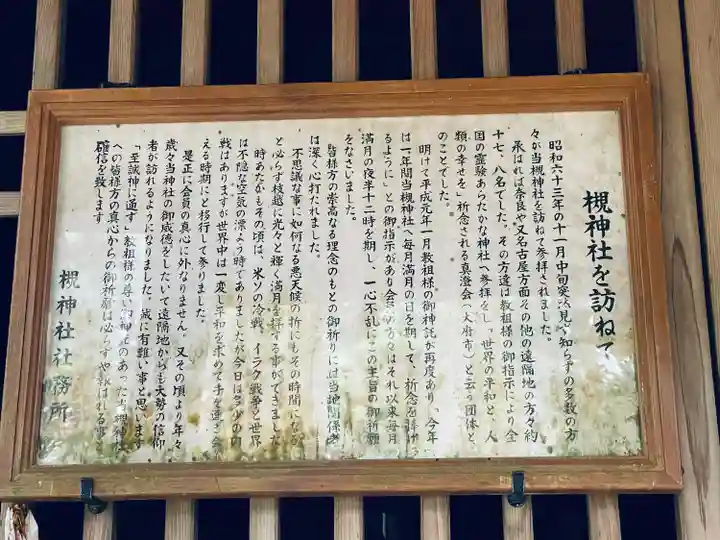 槻神社を訪ねて
昭和六十三年の十一月中旬突然見ず知らずの多数の方
々が当槻神社を訪ねて参拝されました。
承はれば奈良や又名古屋方面その他の遠隔地の方々約
十七、八名でした。その方達は教祖様の御指示により全
国の霊験あらたかな神社へ参拝をし、世界の平和と、人
類の幸せを」祈念される真澄会(大府市)と云う団体と
のことでした。
明けて平成元年一月教祖様の御神託が再度あり「今年
は一年間当槻神社へ毎月満月の日を期して、祈念を捧げ
るように」との御指示があり会員の方々はそれ以来毎月
満月の夜半十二時を期し、一心不乱にこの主旨の御祈願
をなさいました。
皆様方の崇高なる理念のもとの御祈りには当地関係者
は深く心打たれました。
不思議な事に如何なる悪天候の折にもその時間になる
と必らず枝越に光々と輝く満月を拝する事ができました
時あたかもその頃は、米ソの冷戦、イラク戦争と世界
は不穏な空気の漂よう時でありましたが今日は多少の内
戦はありますが世界中は一変し平和を求めて手を進き会
える時期にと移行して参りました。
是正に会員の真心に外なりません。又その頃より年々
歳々当神社の御威徳をしたいて遠隔地からも大勢の信仰
者が訪れるようになりました。誠に有難い事と思います
「至誠神に通ず」教祖様の尊い御神託のあった当槻神社
への皆様方の真心からの御祈願は必らずや報はれる事と
確信を致します
槻神社社務所